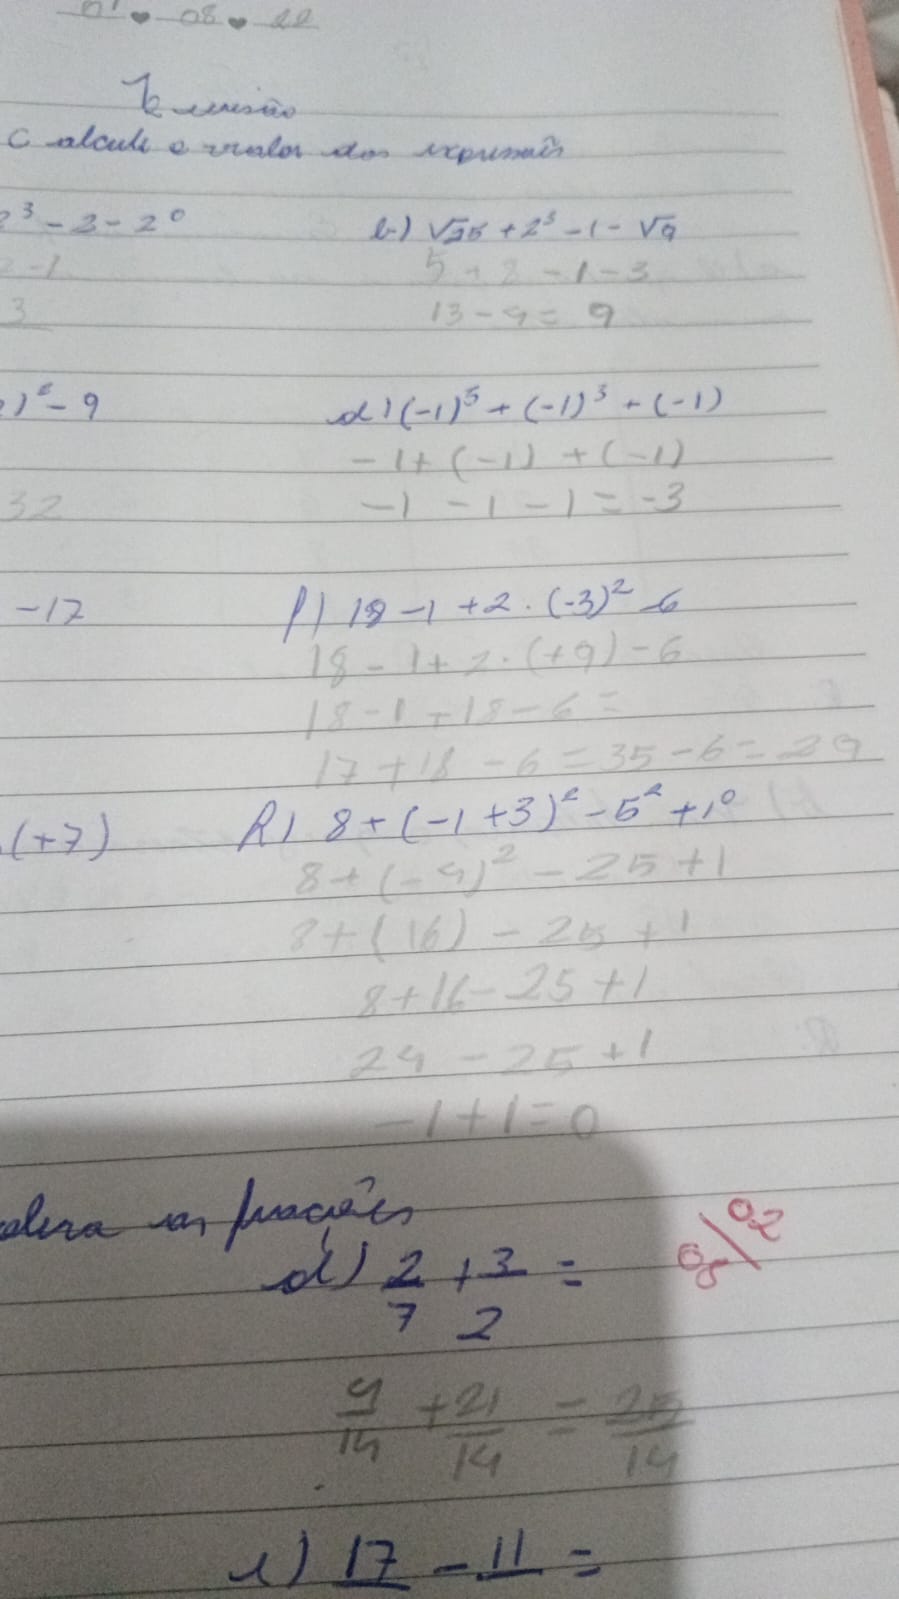 01 08 22
Revisão
Calcule o valor das expressões
2³ - 2 - 2⁰ b) √25 + 2³ - 1 - √9
2 - 1 5 + 8 - 1 - 3
3 13 - 4 = 9
)² - 9 d) (-1)⁵ + (-1)³ + (-1)
-1 + (-1) + (-1)
32 -1 - 1 - 1 = -3
-17 f) 18 - 1 + 2 . (-3)² - 6
18 - 1 + 2 . (+9) - 6
18 - 1 + 18 - 6 =
17 + 18 - 6 = 35 - 6 = 29
. (+7) h) 8 + (-1 + 3)² - 5² + 1⁰
8 + (-4)² - 25 + 1
8 + (16) - 25 + 1
8 + 16 - 25 + 1
24 - 25 + 1
-1 + 1 = 0
as frações
d) 2/7 + 3/2 = 05/02
4/14 + 21/14 = 25/14
17 - 11 =